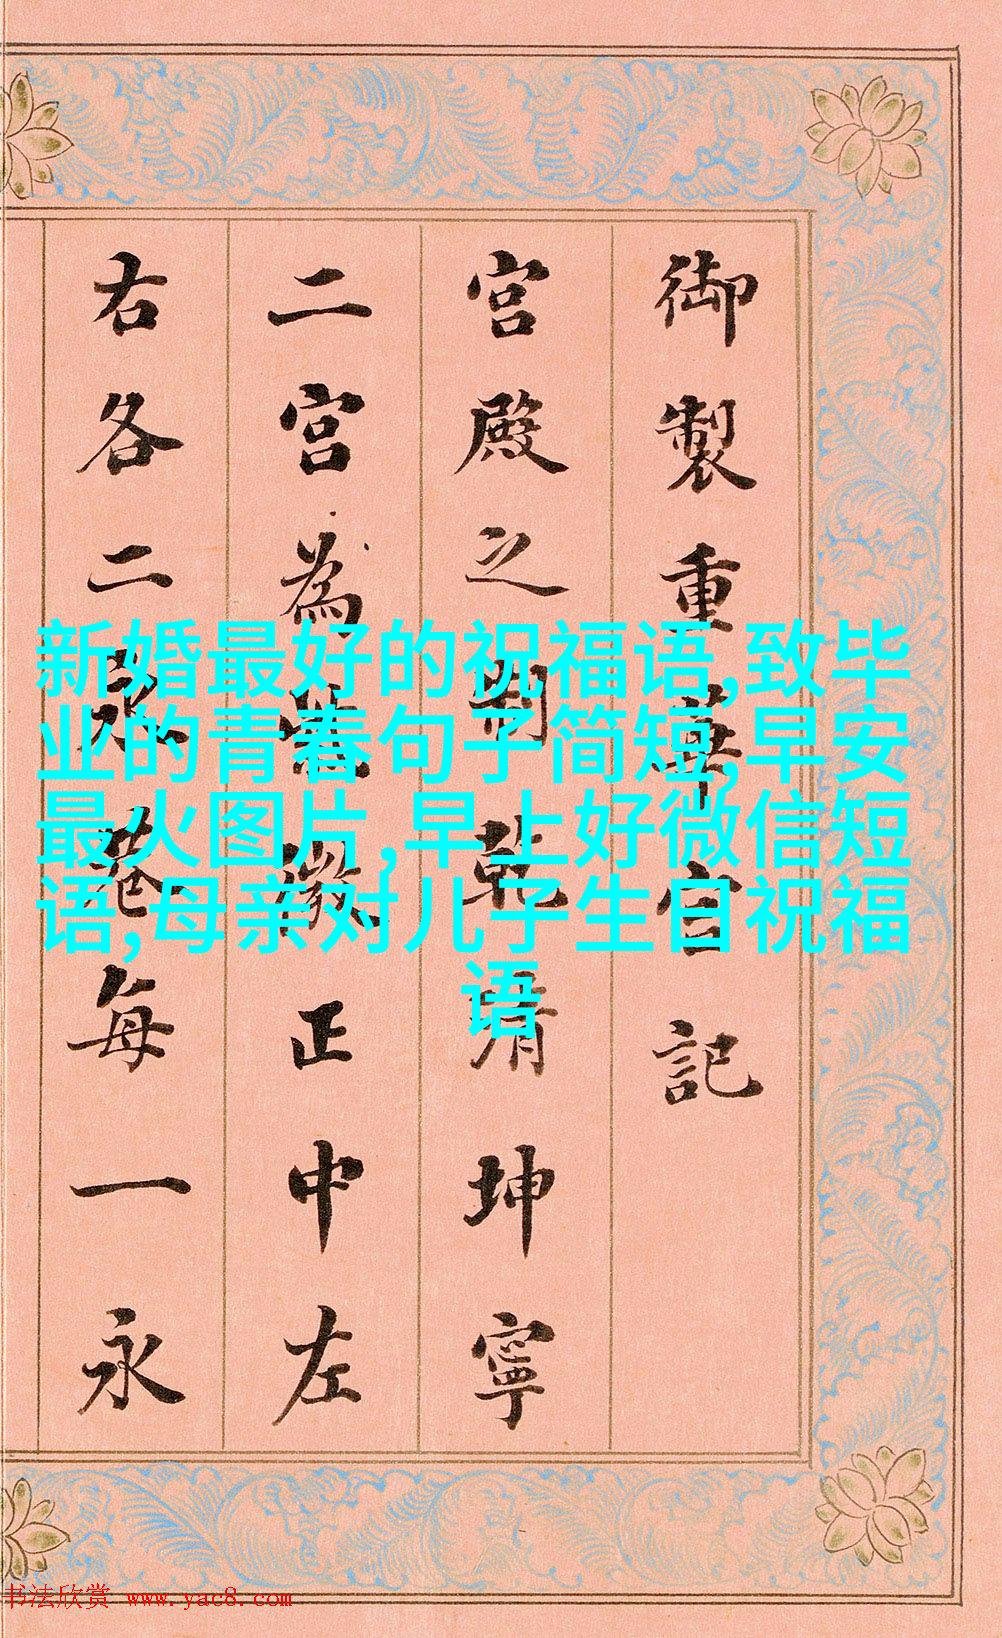 御製重華宮記
宮殿之制乾清坤寧
二宮為紫微正中左
右各二永巷每一永
新婚最好的祝福语,致毕
业的青春句子简短,早安
最火图片,早上好微信短
语,母亲对儿子生日祝福
语
书法欣赏 www.yac8.com